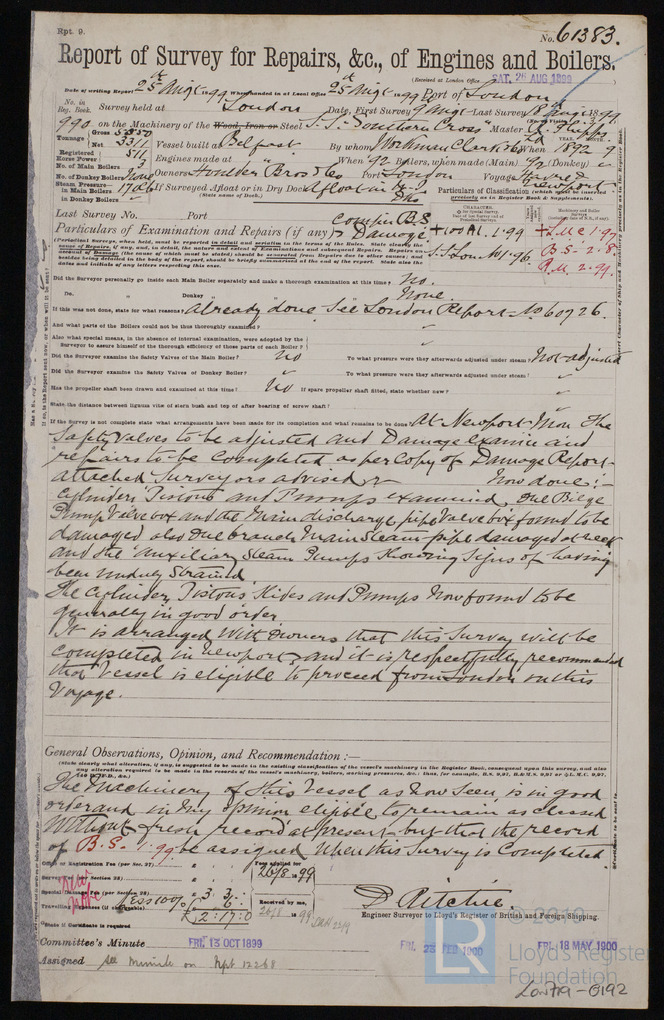 Rpt. 9.
No. 61383.
Report of Survey for Repairs, &c., of Engines and Boilers.
(Received at London Office SAT. 26 AUG 1899)
Date of writing Report 25th Augt 1899 When handed in at Local Office 25th Augt 1899 Port of London
No. in Reg. Book. Survey held at London Date, First Survey 9 Augt Last Survey 18 Augt 1899
990 on the Machinery of the Wood, Iron or Steel S.S. Southern Cross Master
Tonnage Gross 5050 Net 3311 Vessel built at Belfast By whom Workman Clark & Co When 1892
Registered Horse Power 511 Engines made at " When '92 Boilers, when made (Main) '92 (Donkey)
No. of Main Boilers 3
No. of Donkey Boilers None Owners Houlder Bros & Co Port London Voyage Havre & Newport
Steam Pressure in Main Boilers 170 lb If Surveyed Afloat or in Dry Dock Afloat in
in Donkey Boilers (State name of Dock.)
Particulars of Classification (which must be inserted precisely as in Register Book & Supplements).
Last Survey No. Port
Particulars of Examination and Repairs (if any) Damage
+100A1. 1.99
S.S. Lon No 1.96
+LMC 1.97
B.S. 2.8
Did the Surveyor personally go inside each Main Boiler separately and make a thorough examination at this time? No.
Do. " Donkey " " None.
If this was not done, state for what reasons? Already done. See London Report No 60726.
And what parts of the Boilers could not be thus thoroughly examined?
Also what special means, in the absence of internal examination, were adopted by the
Surveyor to assure himself of the thorough efficiency of those parts of each Boiler?
Did the Surveyor examine the Safety Valves of the Main Boiler? No To what pressure were they afterwards adjusted under steam? Not adjusted
Did the Surveyor examine the Safety Valves of Donkey Boiler? To what pressure were they afterwards adjusted under steam?
Has the propeller shaft been drawn and examined at this time? No If spare propeller shaft fitted, state whether new?
State the distance between lignum vitæ of stern bush and top of after bearing of screw shaft?
If the Survey is not complete state what arrangements have been made for its completion and what remains to be done At Newport Mon the
Safety Valves to be adjusted and Damage examine and
repairs to be completed as per Copy of Damage Report
attached Surveyors advised Now done:-
Cylinders Pistons and Pumps examined One Bilge
Pump Valve box and the Main discharge pipe Valve box found to be
damaged also One branch Main Steam pipe damaged at neck
and the Auxiliary Steam Pumps showing signs of having
been unduly strained
The Cylinder, Pistons Slides and Pumps now found to be
generally in good order
It is arranged with Owners that this Survey will be
completed in Newport, and it is respectfully recommended
that Vessel is eligible to proceed from London on this
Voyage.
General Observations, Opinion, and Recommendation:—
(State clearly what alteration, if any, is suggested to be made in the existing classification of the vessel's machinery in the Register Book, consequent upon this survey, and also
any alteration required to be made in the records of the vessel's machinery, boilers, working pressures, &c.: thus, for example, B.S. 9,97, B.&M.S. 9,97 or L.M.C. 9,97,
The Machinery of this Vessel as now seen is in good
order and in my opinion eligible to remain as classed
without fresh record at present but that the record
of B.S. 1.99 be assigned when this Survey is completed
Office or Registration Fee (per Sec. 27) Fees applied for
26/8 1899
Special Damage Fee (per Section 28) 3. 3. -
less 10% 6. -
£ 2:17:0
Received by me,
D Ritchie.
Engineer Surveyor to Lloyd's Register of British and Foreign Shipping.
Committee's Minute FRI. 13 OCT 1899 FRI. 23 FEB 1900 FRI. 18 MAY 1900
Assigned See Minute on Npt 12268
LR
© 2019
Lloyd's Register
Foundation
Lon719-0192